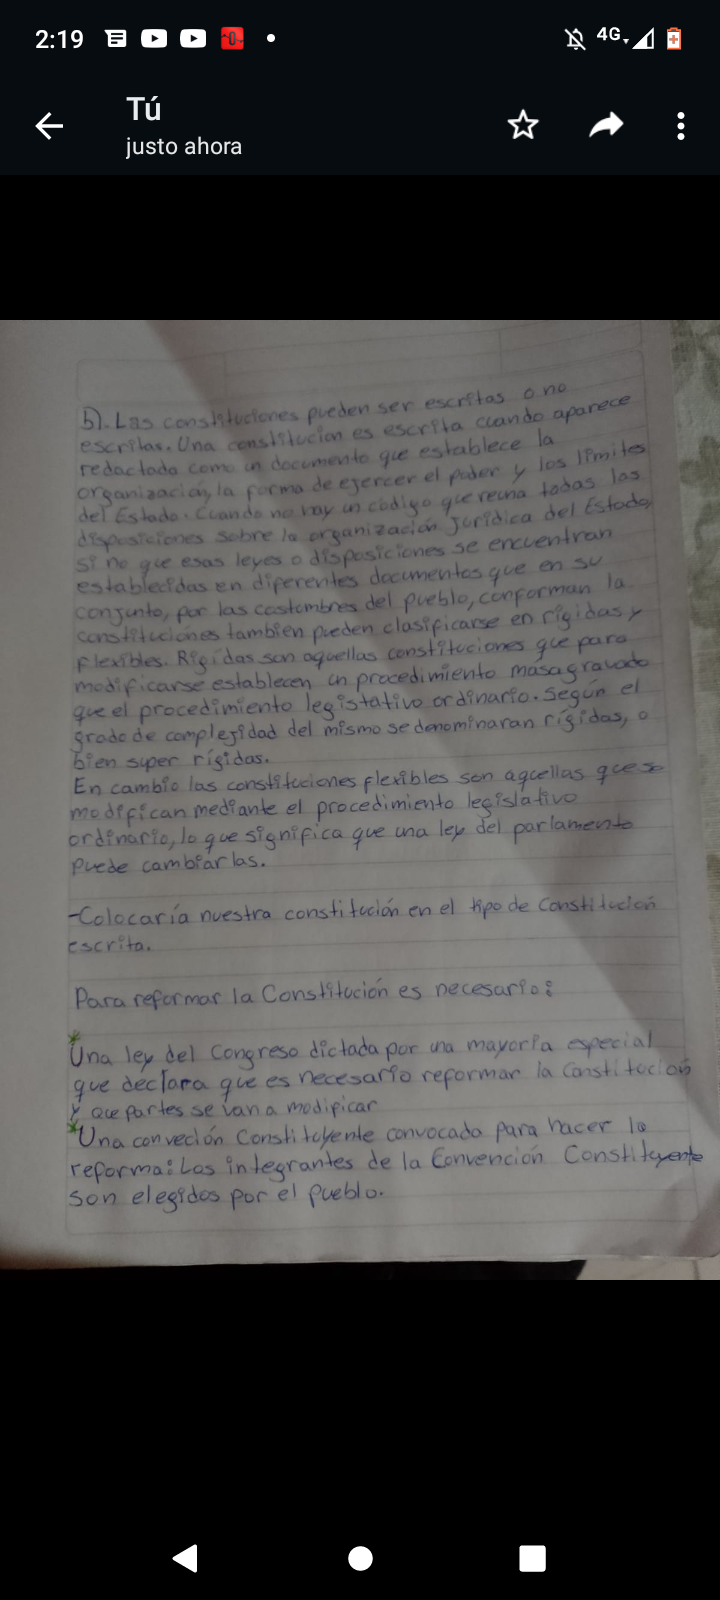 2:19
4G
Tú
justo ahora
b). Las constituciones pueden ser escritas o no
escritas. Una constitución es escrita cuando aparece
redactada como un documento que establece la
organización, la forma de ejercer el poder y los límites
del Estado. Cuando no hay un código que reúna todas las
disposiciones sobre la organización jurídica del Estado,
si no que esas leyes o disposiciones se encuentran
establecidas en diferentes documentos que en su
conjunto, por las costumbres del pueblo, conforman la
constituciónes tambien pueden clasificarse en rígidas y
flexibles. Rígidas son aquellas constituciones que para
modificarse establecen un procedimiento masagravado
que el procedimiento legistativo ordinario. Según el
grado de complejidad del mismo se denominaran rígidas, o
bien super rígidas.
En cambio las constituciones flexibles son aquellas que se
modifican mediante el procedimiento legislativo
ordinario, lo que significa que una ley del parlamento
puede cambiarlas.
-Colocaría nuestra constitución en el tipo de Constitución
escrita.
Para reformar la Constitución es necesario:
*Una ley del Congreso dictada por una mayoría especial
que declara que es necesario reformar la Constitución
y que partes se van a modificar
*Una conveción Constituyente convocada para hacer la
reforma: Los integrantes de la Convención Constituyente
son elegidos por el pueblo.